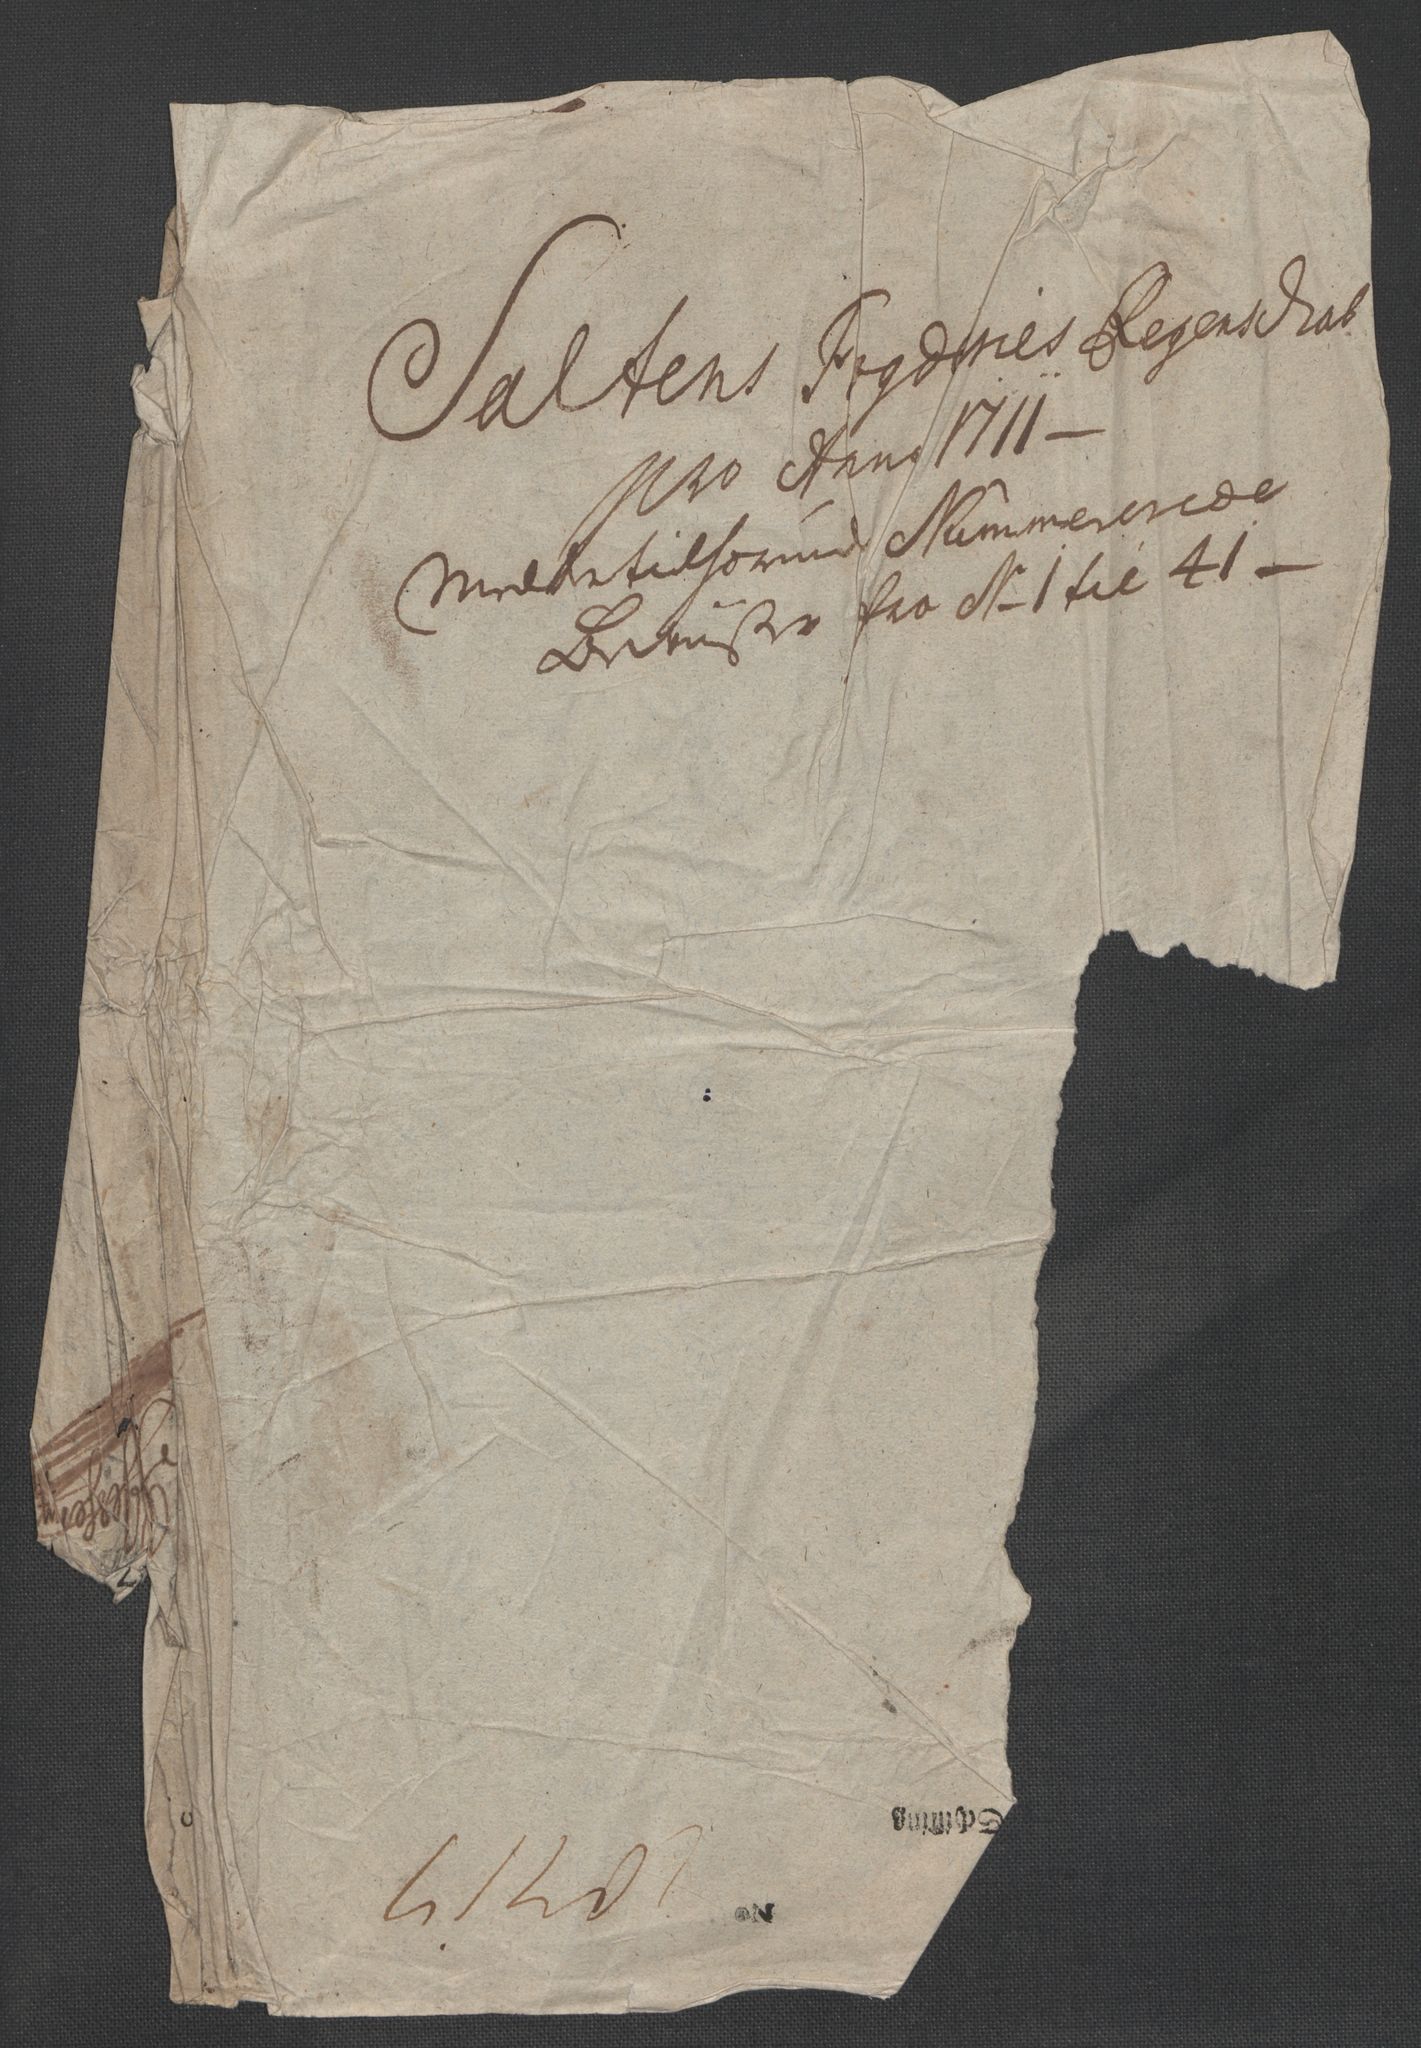 Saltens Fogderies Regenskab
pro Anno 1711 -
Med dertilhørende Nummererede
Beviiser fra No 1 til 41 -
Schilling
No